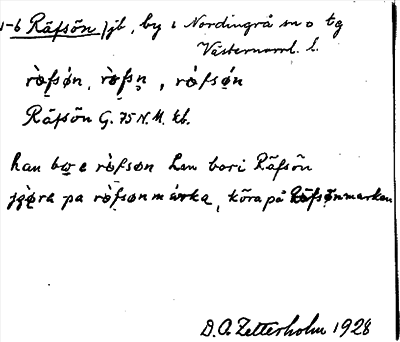 1-6 Räfsön, jb, by i Nordingrå sn o tg
Västernorrl. l.
rò̀fsǿn, rò̀fsn̥, rò̀fsøn
Räfsön G. 75 N. M. kb.
han bor e rò̀fsøn han bor i Räfsön
pa rò̀fsøn marka, köra på Räfsönmarken
D. O. Zetterholm 1928